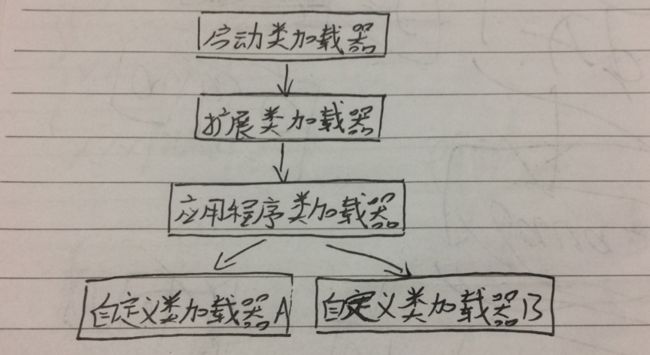 启动类加载器
扩展类加载器
应用程序类加载器
自定义类加载器A
自定义类加载器B